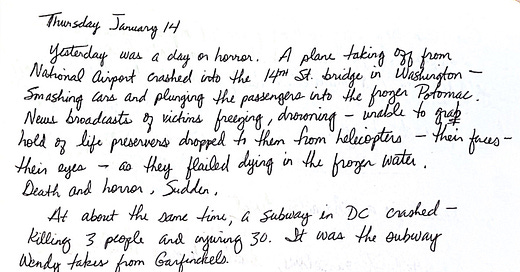 Thursday January 14
Yesterday was a day or horror. A plane taking off from
National Airport crashed into the 14TH St. bridge in Washington —
Smashing cars and plunging the passengers into the frozen Potomac.
News broadcasts of victims freezing, drowning — unable to grab
hold of life preservers dropped to them from helicopters — their faces —
their eyes — as they flailed dying in the frozen water.
Death and horror, Sudden.
At about the same time, a subway in DC crashed —
Killing 3 people and injuring 30. It was the subway
Wendy takes from Garfinckels.